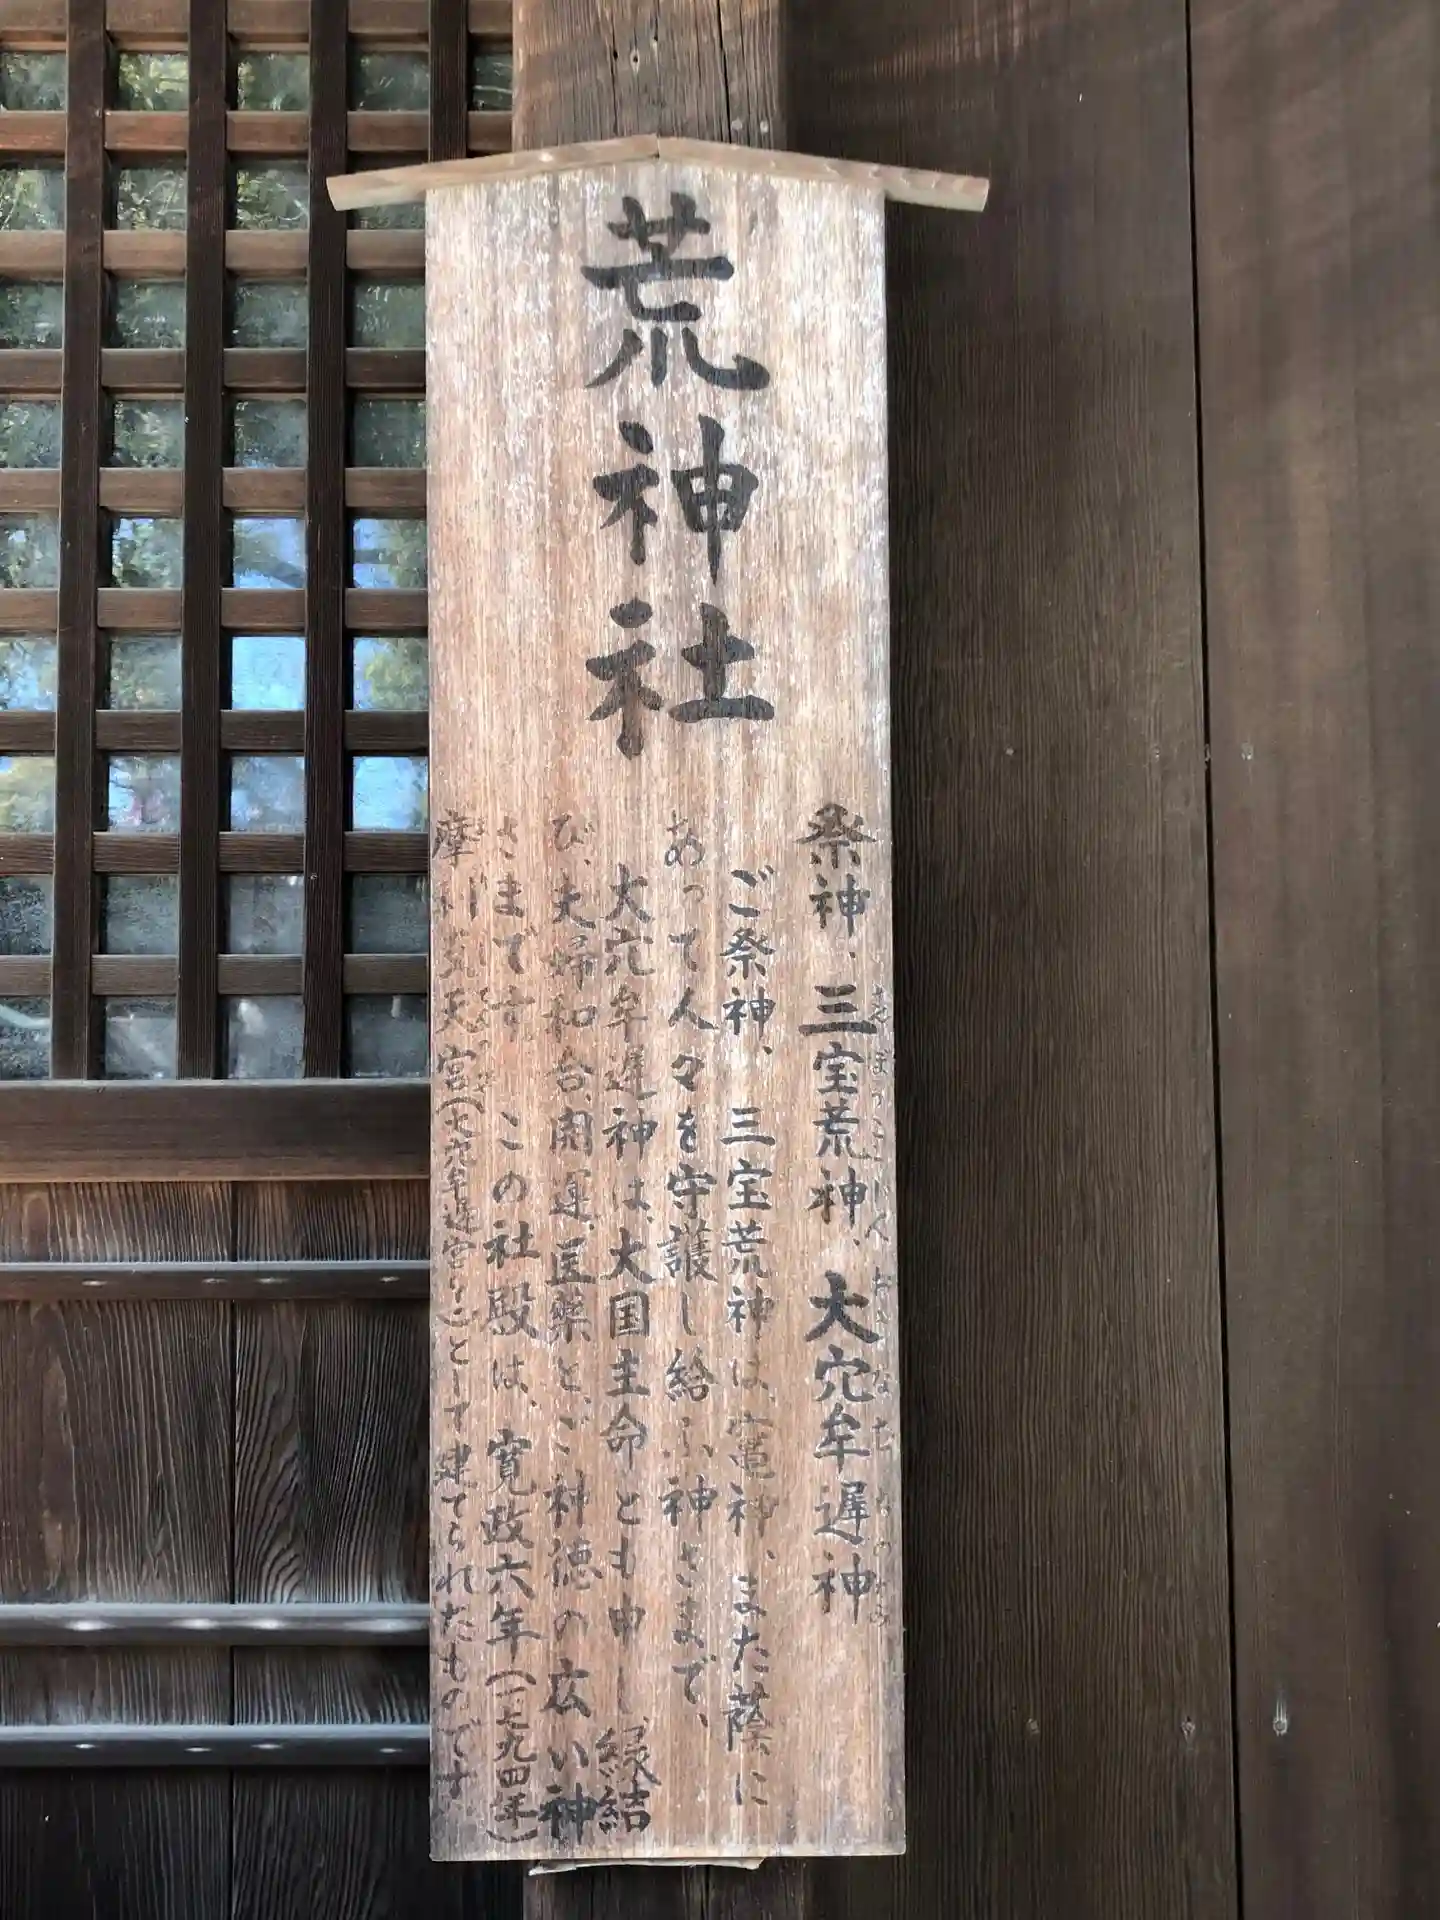 荒神社
祭神、三宝荒神、大穴牟遅神
ご祭神、三宝荒神は、竈神、また蔭に
あって人々を守護し給ふ神さまで、
大穴牟遅神は、大国主命とも申し、縁結
び、夫婦和合、開運、医薬と、ご神徳の広い神
さまです。この社殿は、寛政六年(一七九四年)
摩利支天宮(大穴牟遅宮)として建てられたものです。